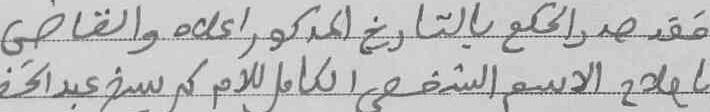 فقد صدر الحكم بالتاريخ المذكور اعلاه والقاضي
باصلاح الاسم الشخصي الكامل للام